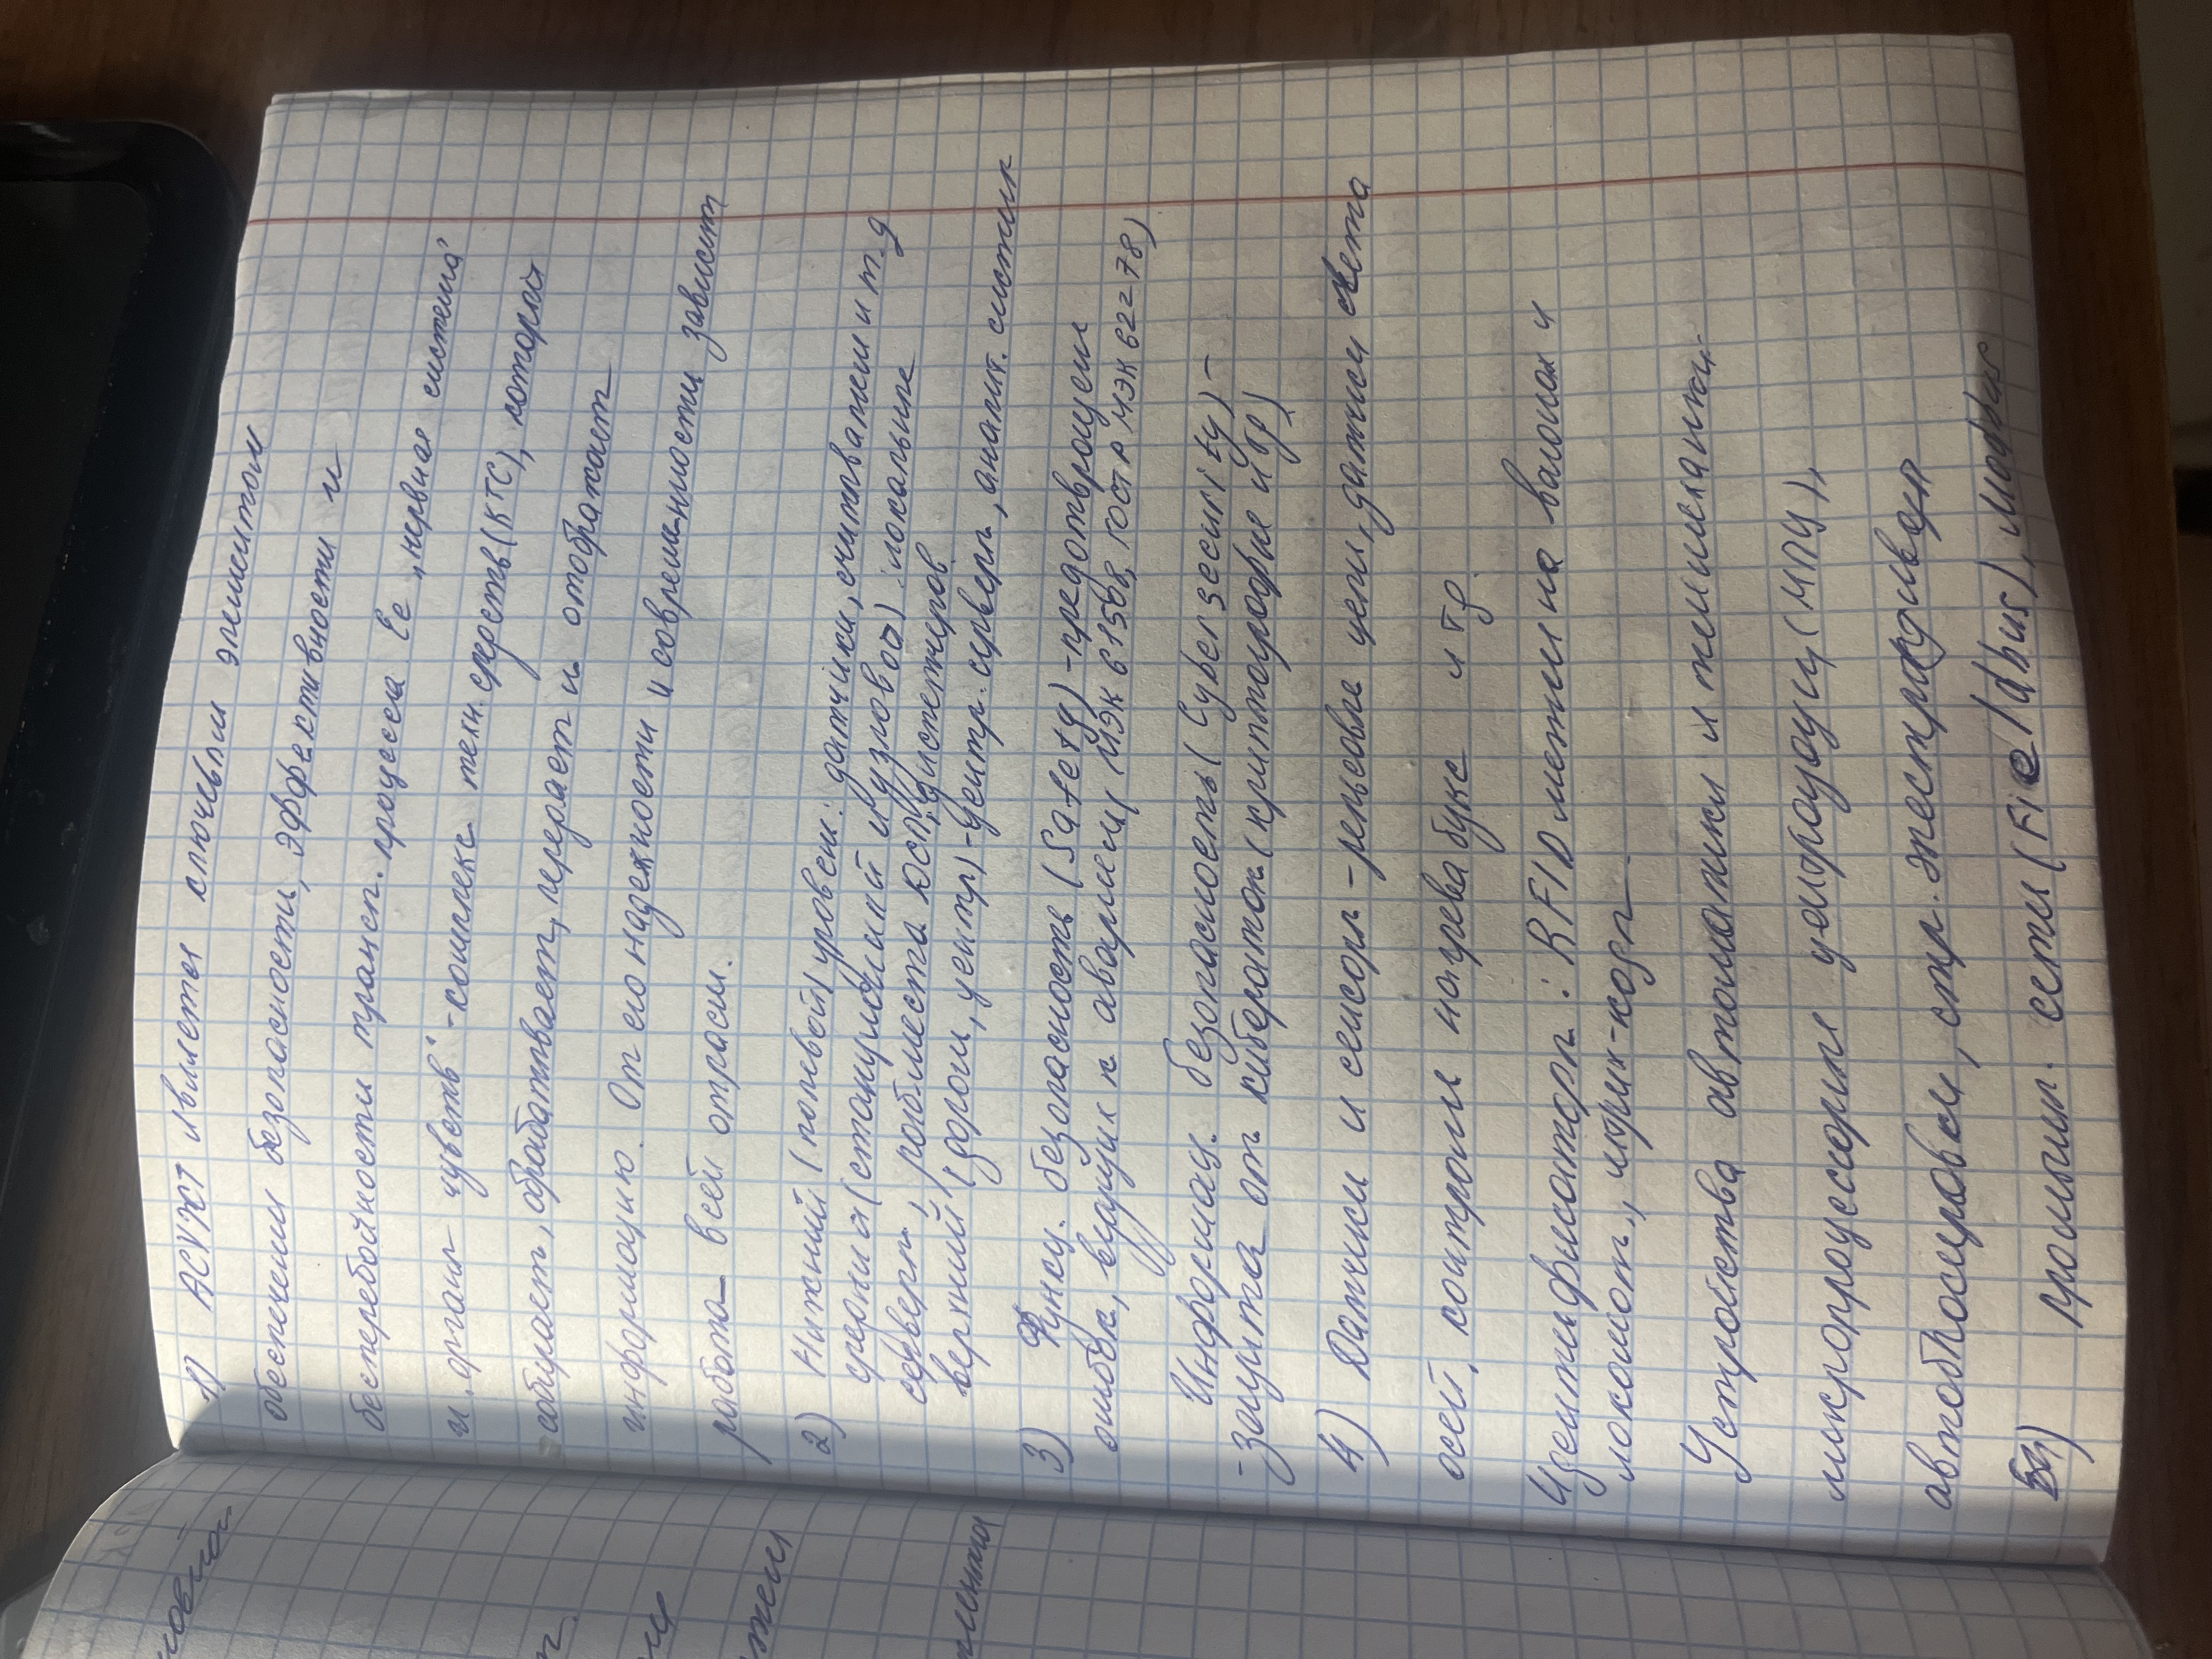 1) АСУЖТ является ключевым элементом
обеспечения безопасности, эффективности и
бесперебойности трансп. процесса. Ее „нервная система"
и „органы чувств" - комплекс техн. средств (КТС), который
собирает, обрабатывает, передает и отображает
информацию. От его надежности и современности зависит
работа всей отрасли.
2) Нижний (полевой) уровень: датчики, считыватели и т.д
средний (станционный и узловой): локальные
серверы, рабочие места ДСП, диспетчеров
верхний (дороги, центр) - центр. серверы, аналит. систем
3) Функц. безопасность (Safety) - предотвращен
ошибок, ведущих к аварии (МЭК 61508, ГОСТ Р МЭК 62278)
Информац. безопасность (Cybersecurity) -
- защита от кибератак (криптография и др)
4) Датчики и сенсоры - рельсовые цепи, датчики счета
осей, контроль нагрева букс и тд.
Идентификаторы: RFID метки на вагонах и
локомот., штрих-коды
Устройства автоматики и телемеханики
микропроцессорные централизации (МПЦ),
автоблокировки, стр.
5) промышл. сети (Fieldbus), Modbus
новной
ии
жен